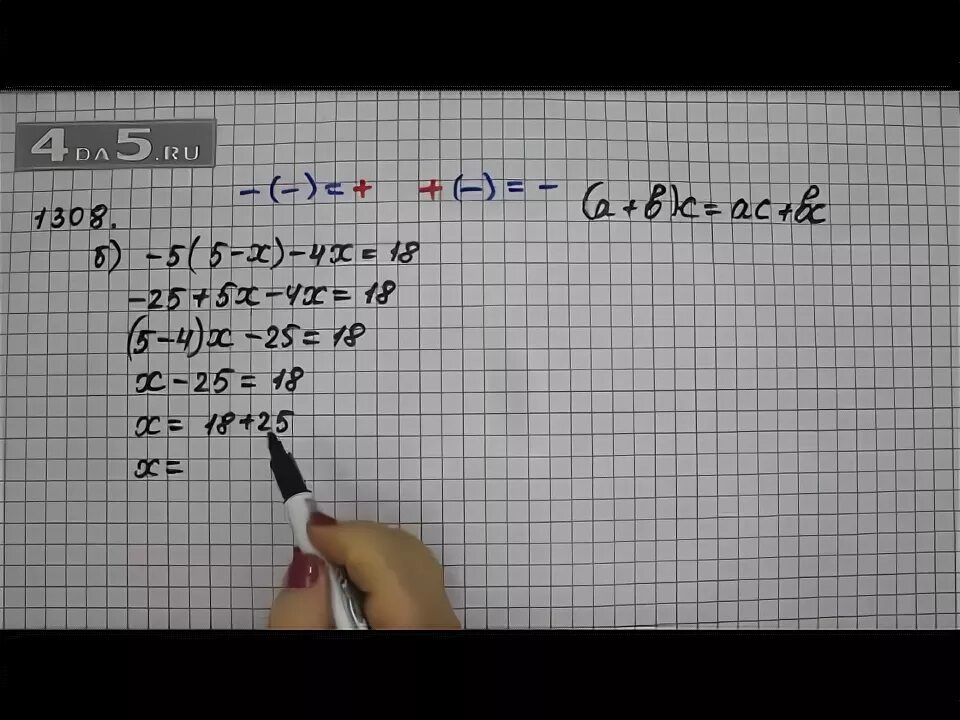 4DA5.RU
- (-) = +   + (-) = -   (a + b)c = ac + bc
1308.
б) -5( 5 - x) - 4x = 18
-25 + 5x - 4x = 18
(5 - 4)x - 25 = 18
x - 25 = 18
x = 18 + 25
x =